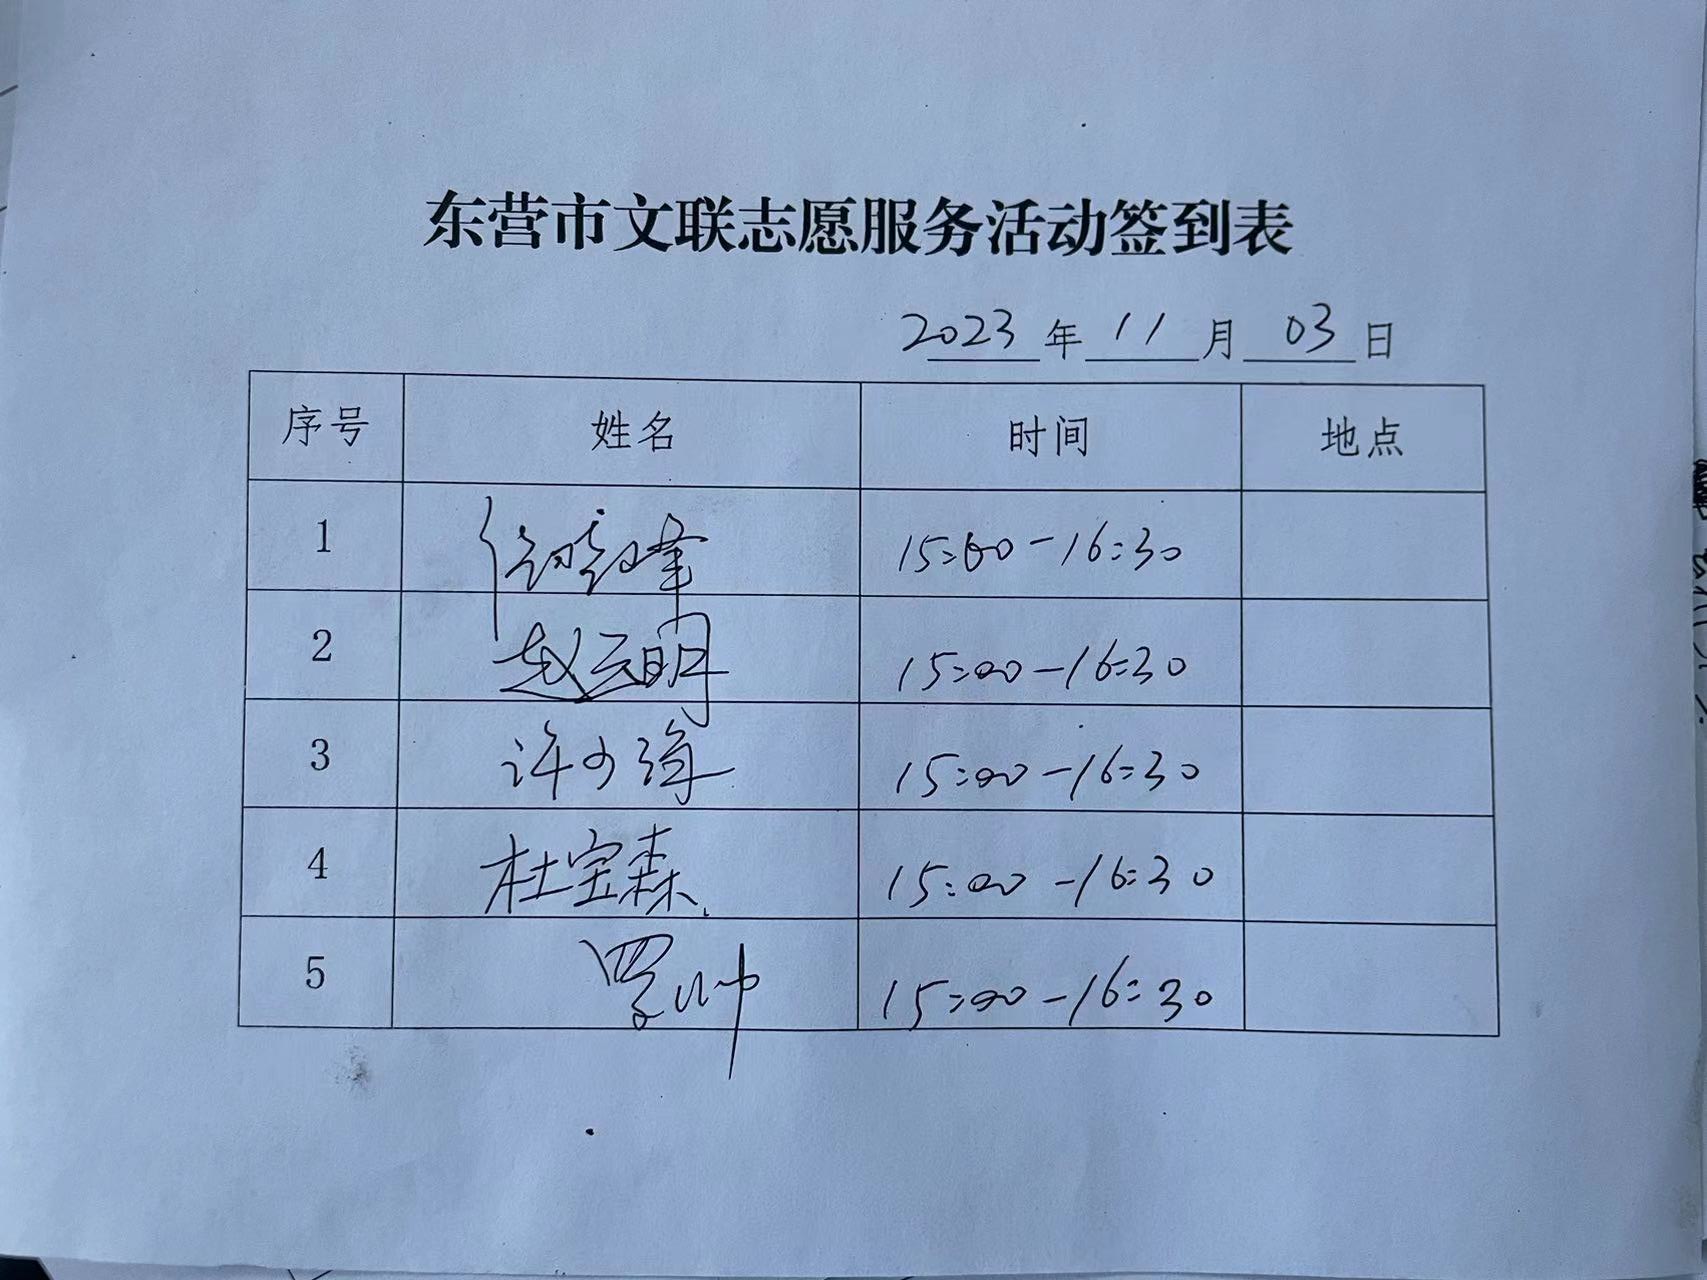 东营市文联志愿服务活动签到表
2023年11月03日
序号 姓名 时间 地点
1 15:00-16:30
2 赵云明 15:00-16:30
3 许少强 15:00-16:30
4 杜宝森 15:00-16:30
5 罗帅 15:00-16:30